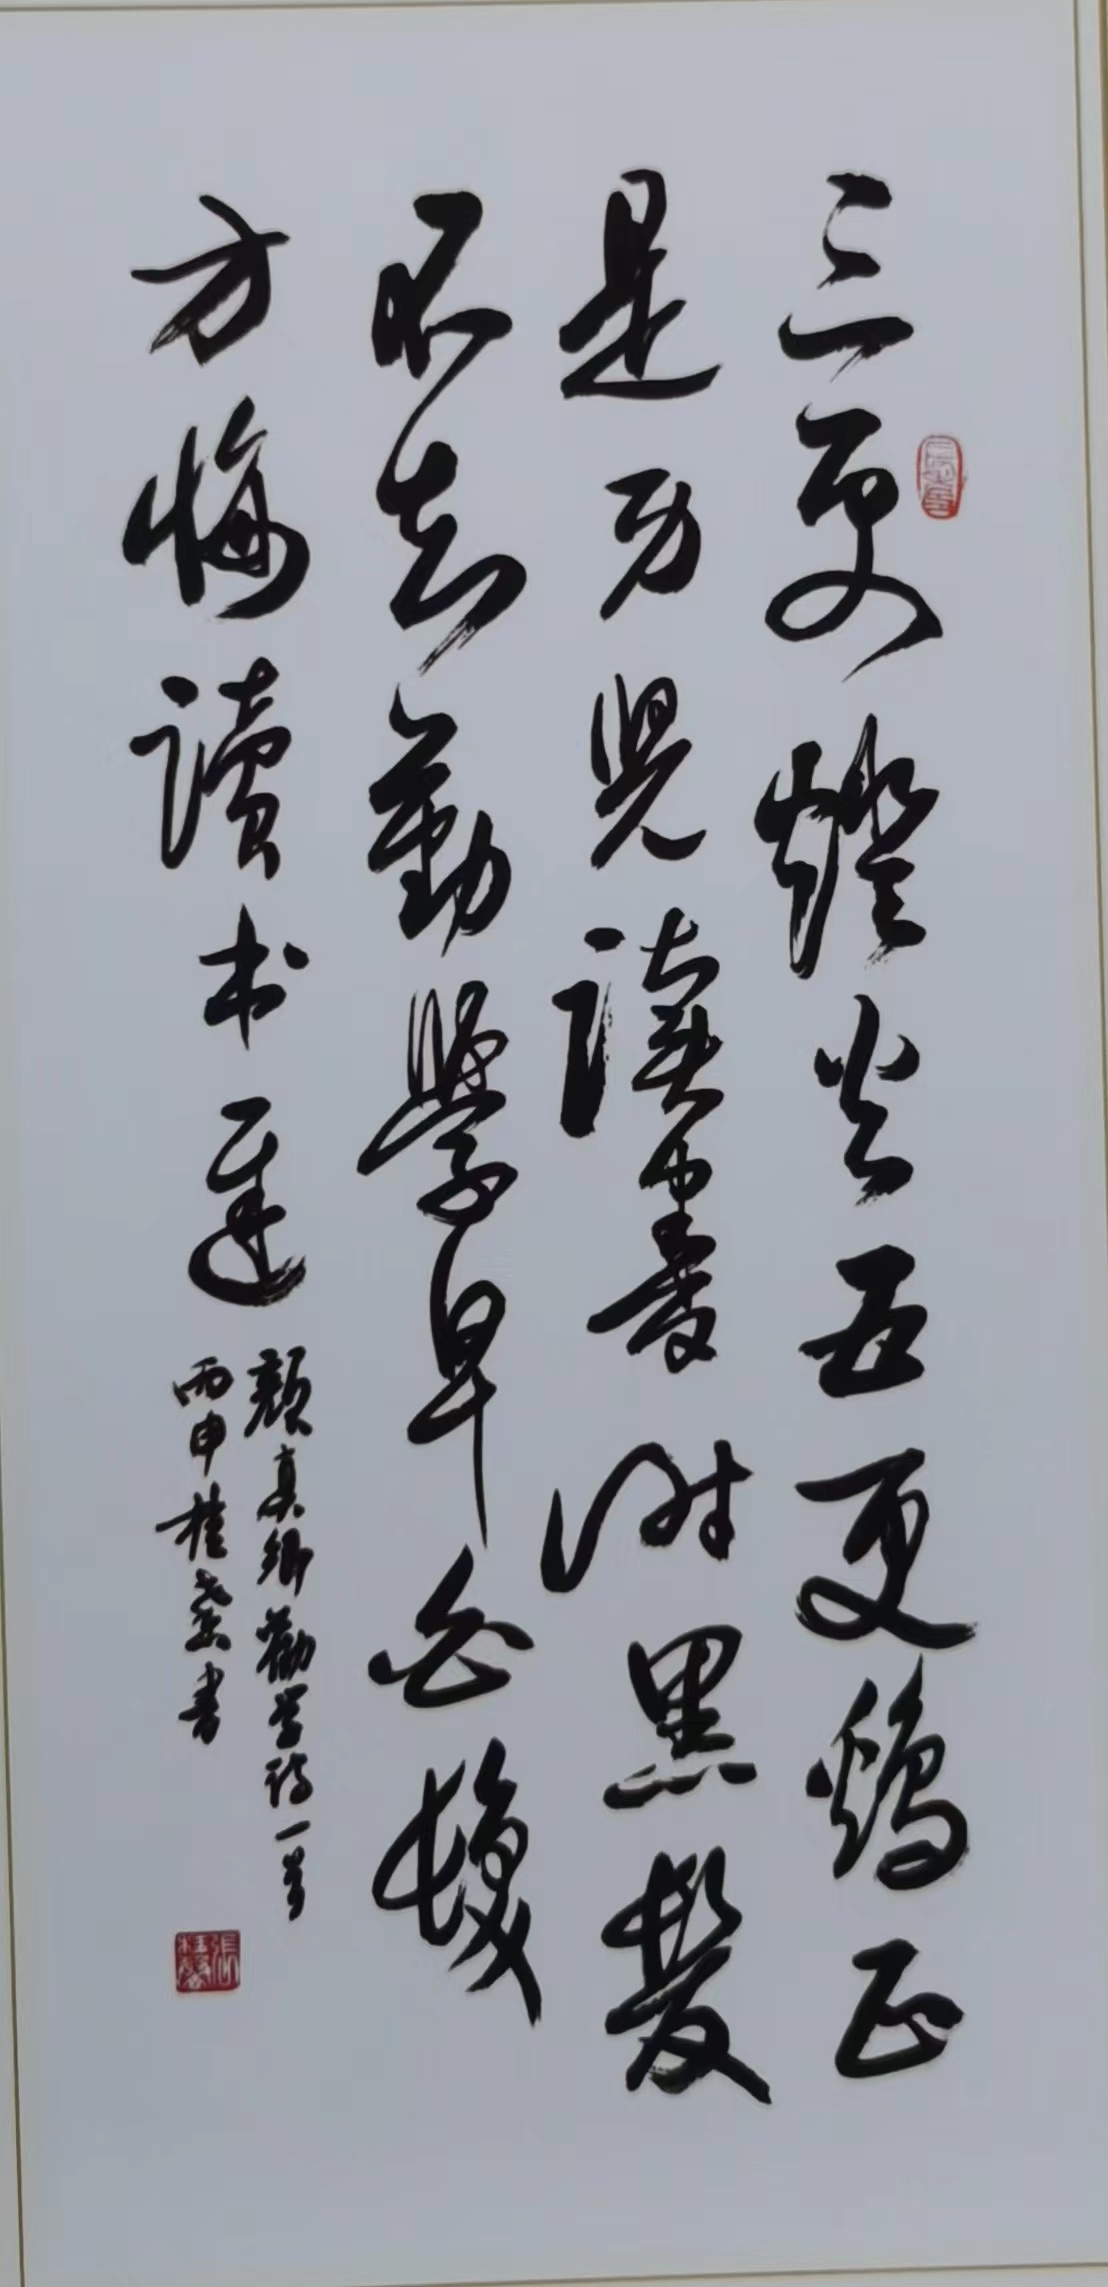 三更燈火五更鷄正
是男兒讀書时黑髮
不知勤學早白髮
方悔讀书遲
顏真卿勸学詩一首
丙申桂書